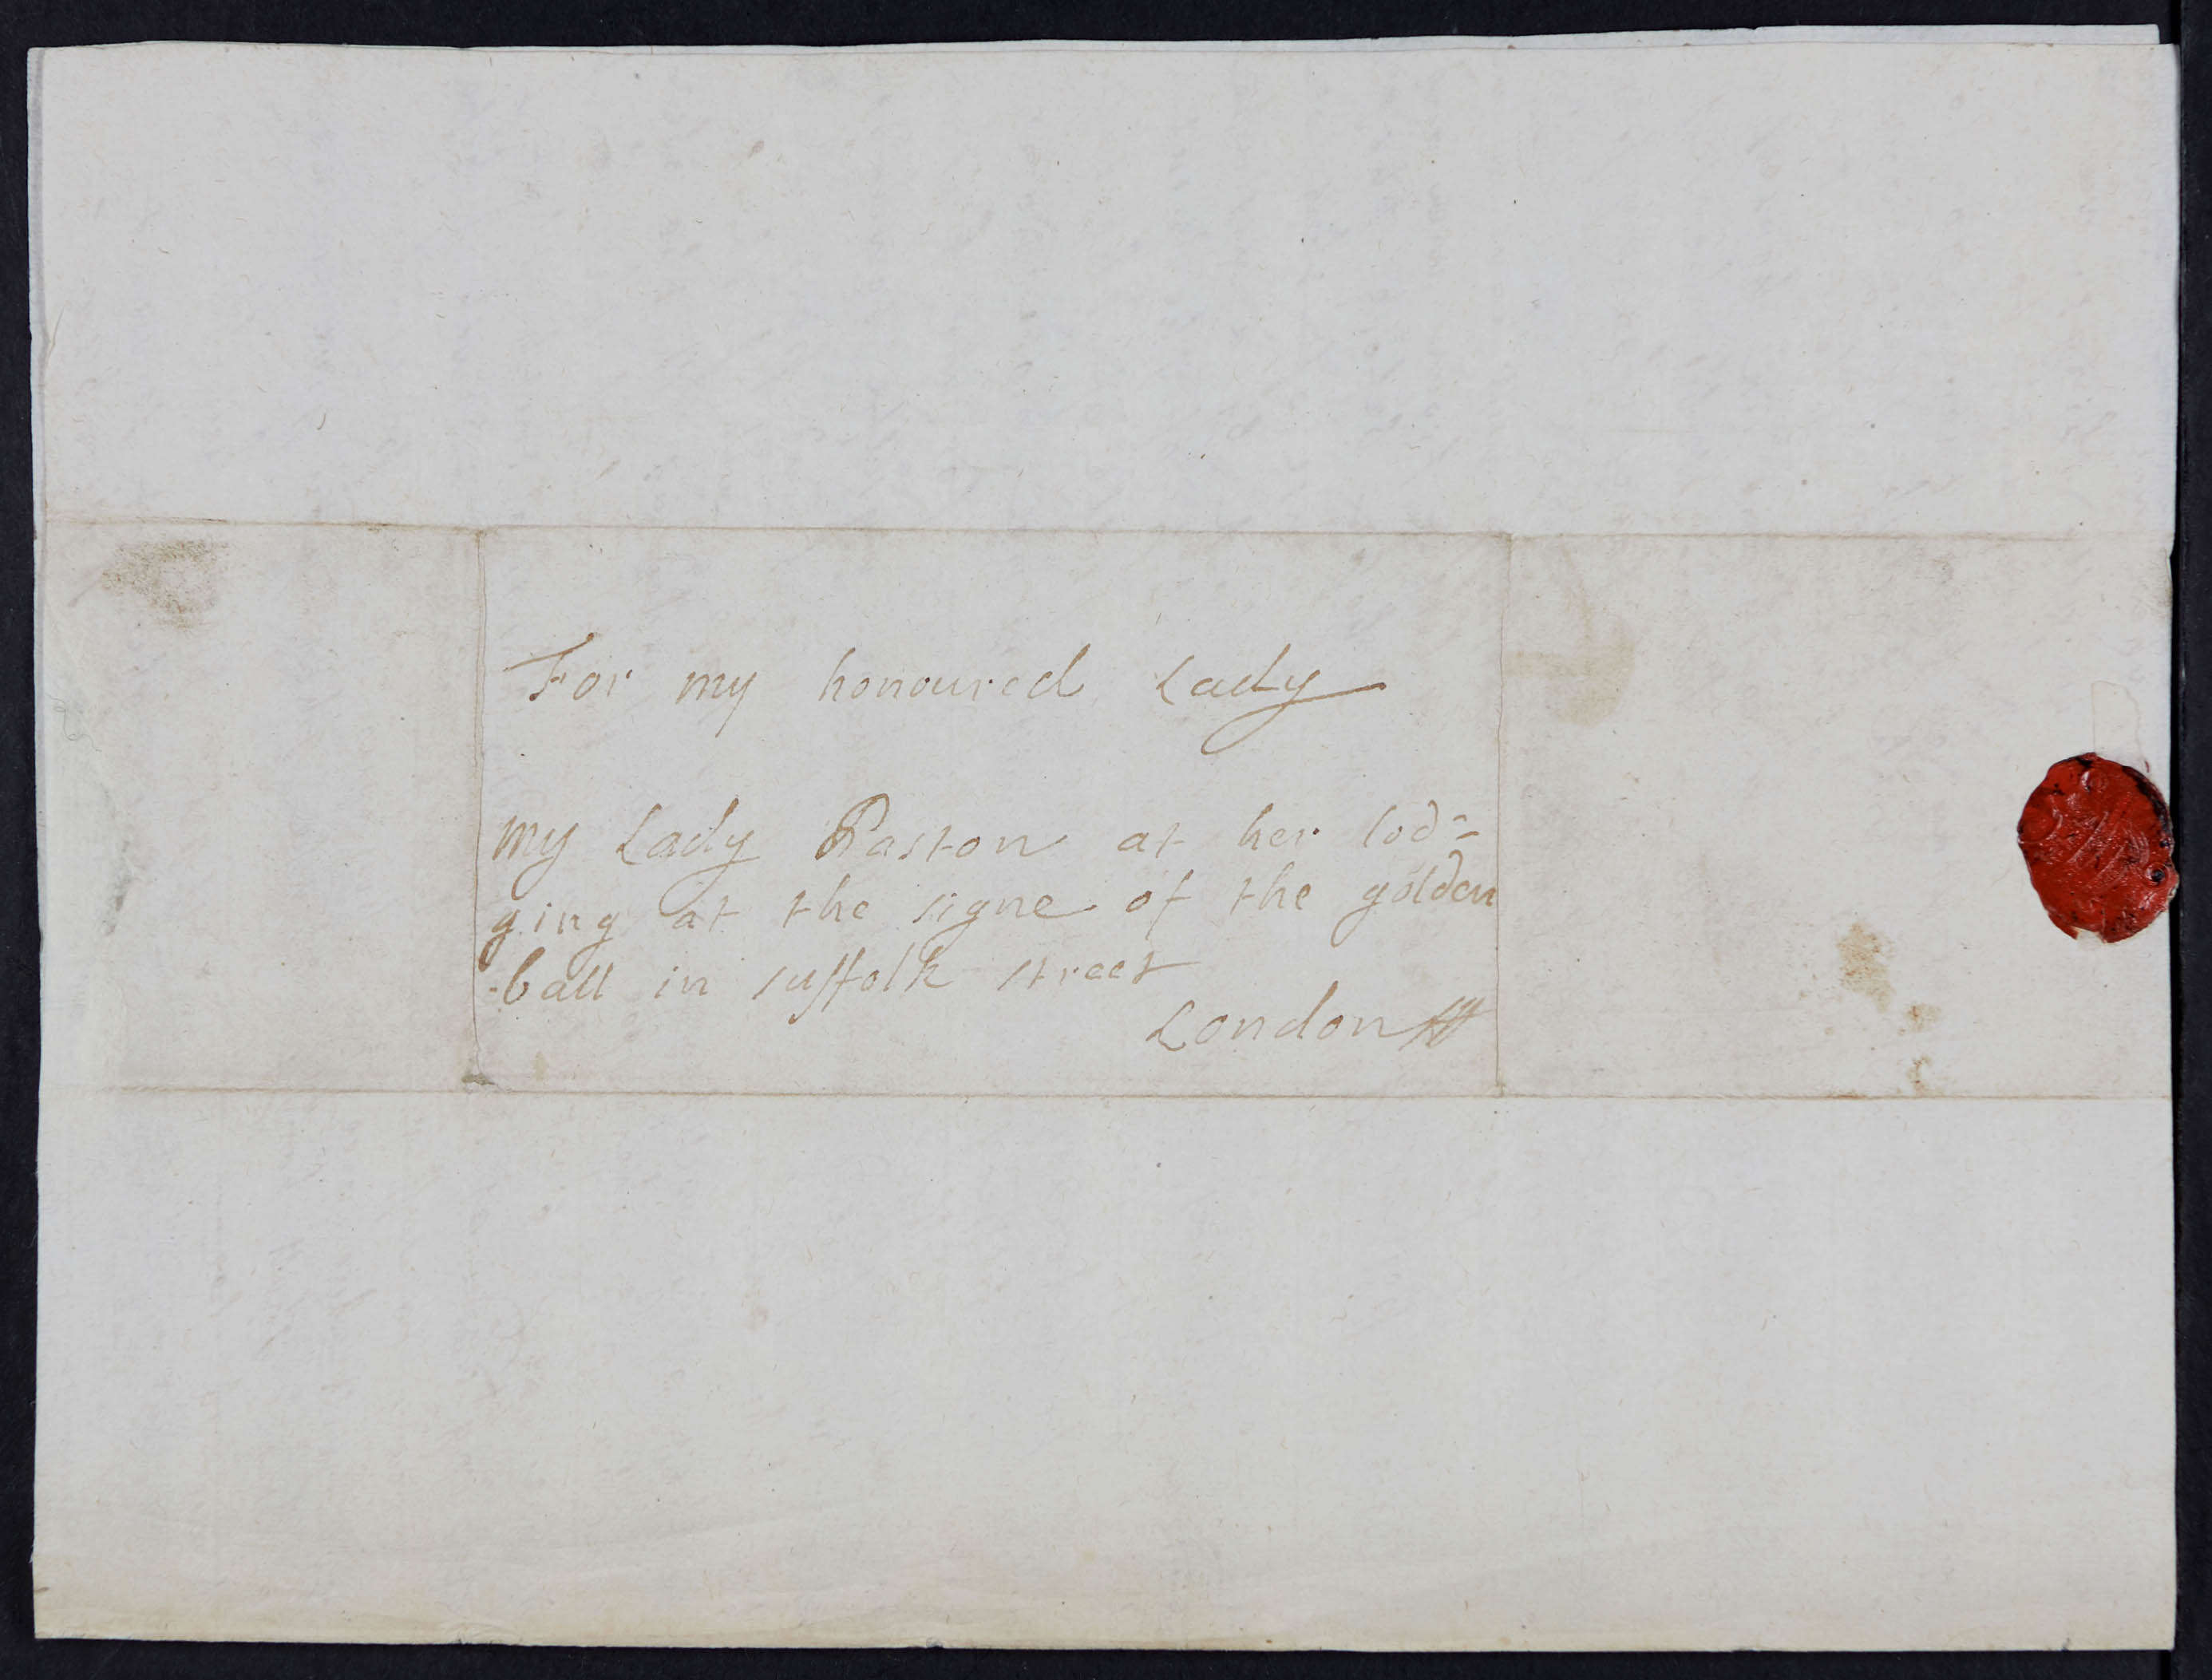 For my honoured Lady
my Lady Paston at her lod=
ging at the signe of the golden
ball in suffolk street
London